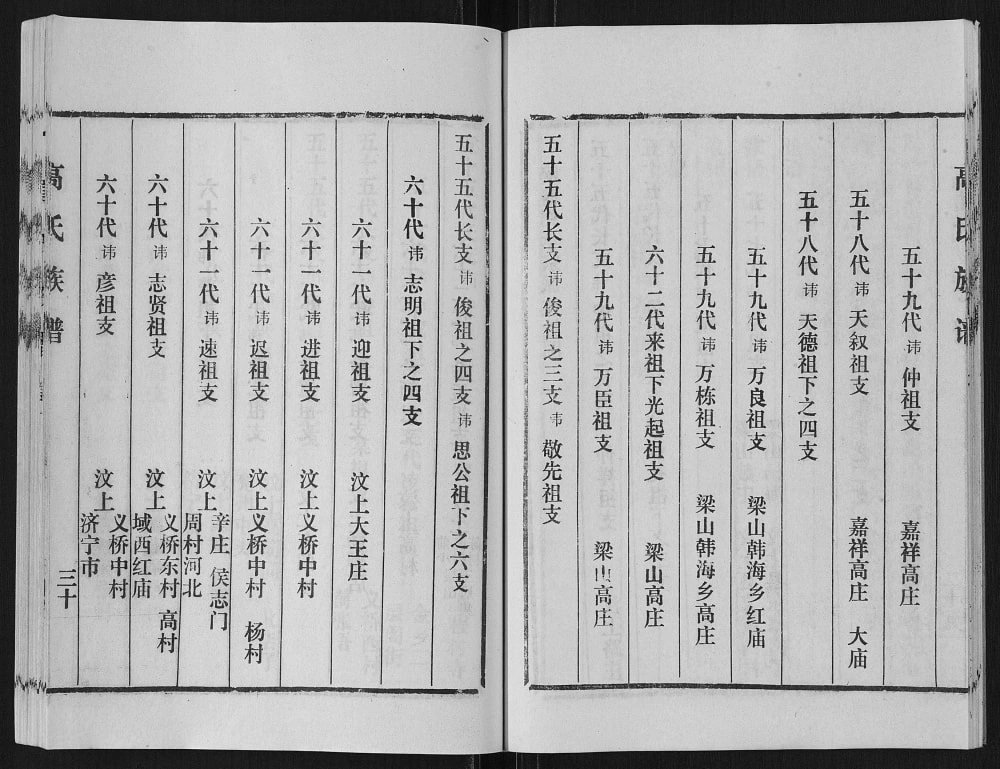 高氏族谱
五十九代 讳 仲祖支 嘉祥高庄
五十八代 讳 天叙祖支 嘉祥高庄 大庙
五十八代 讳 天德祖下之四支
五十九代 讳 万良祖支 梁山韩海乡红庙
五十九代 讳 万栋祖支 梁山韩海乡高庄
六十二代来祖下光起祖支 梁山高庄
五十九代 讳 万臣祖支 梁山高庄
五十五代长支 讳 俊祖之三支 讳 敬先祖支
五十五代长支 讳 俊祖之四支 讳 思公祖下之六支
六十代 讳 志明祖下之四支
六十一代 讳 迎祖支 汶上大王庄
六十一代 讳 进祖支 汶上义桥中村
六十一代 讳 迟祖支 汶上义桥中村 杨村
六十一代 讳 速祖支 汶上 辛庄 侯志门
周村河北
六十代 讳 志贤祖支 汶上 义桥东村 高村
域西红庙
六十代 讳 彦祖支 汶上 义桥中村
济宁市
高氏族谱
三十